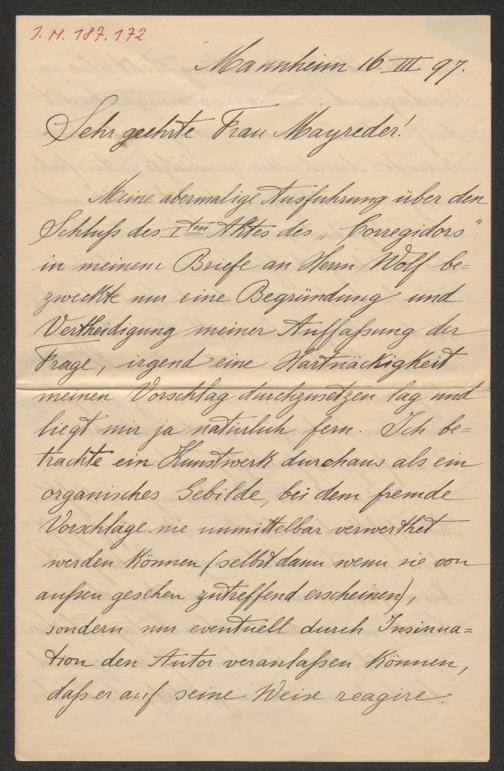 I. N. 187.172
Mannheim 16 III 97.
Sehr geehrte Frau Mayreder!
Meine abermalige Ausführung über den
Schluß des Iten Aktes des „Corregidors"
in meinem Briefe an Herrn Wolf be=
zweckte nur eine Begründung und
Vertheidigung meiner Auffaßung der
Frage, irgend eine Hartnäckigkeit
meinen Vorschlag durchzusetzen lag und
liegt mir ja natürlich fern. Ich be=
trachte ein Kunstwerk durchaus als ein
organisches Gebilde, bei dem fremde
Vorschläge nie unmittelbar verwerthet
werden können (selbst dann wenn sie von
außen gesehen zutreffend erscheinen),
sondern nur eventuell durch Insinua=
tion den Autor veranlaßen können,
daß er auf seine Weise reagire.